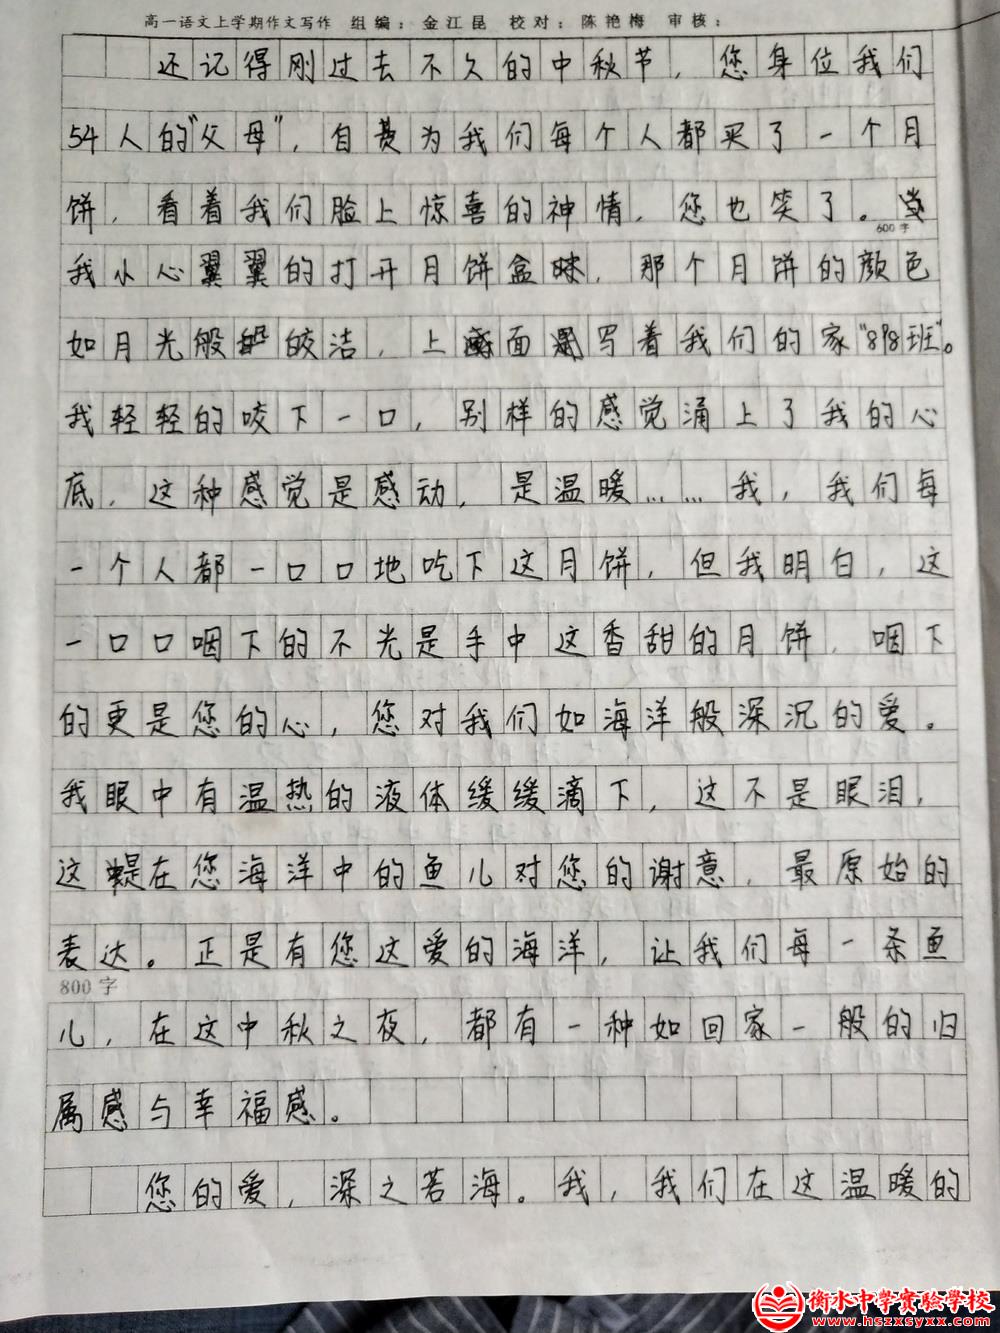 高一语文上学期作文写作 组编：金江昆 校对：陈艳梅 审核：
还记得刚过去不久的中秋节，您身位我们
54人的"父母"，自费为我们每个人都买了一个月
饼，看着我们脸上惊喜的神情，您也笑了。当
600字
我小心翼翼的打开月饼盒时，那个月饼的颜色
如月光般皎洁，上面写着我们的家"898班"。
我轻轻的咬下一口，别样的感觉涌上了我的心
底，这种感觉是感动，是温暖……我，我们每
一个人都一口口地吃下这月饼，但我明白，这
一口口咽下的不光是手中这香甜的月饼，咽下
的更是您的心，您对我们如海洋般深沉的爱。
我眼中有温热的液体缓缓滴下，这不是眼泪，
这是在您海洋中的鱼儿对您的谢意，最原始的
表达。正是有您这爱的海洋，让我们每一条鱼
800字
儿，在这中秋之夜，都有一种如回家一般的归
属感与幸福感。
您的爱，深之若海。我，我们在这温暖的
衡水中学实验学校
www.hszxsyxx.com